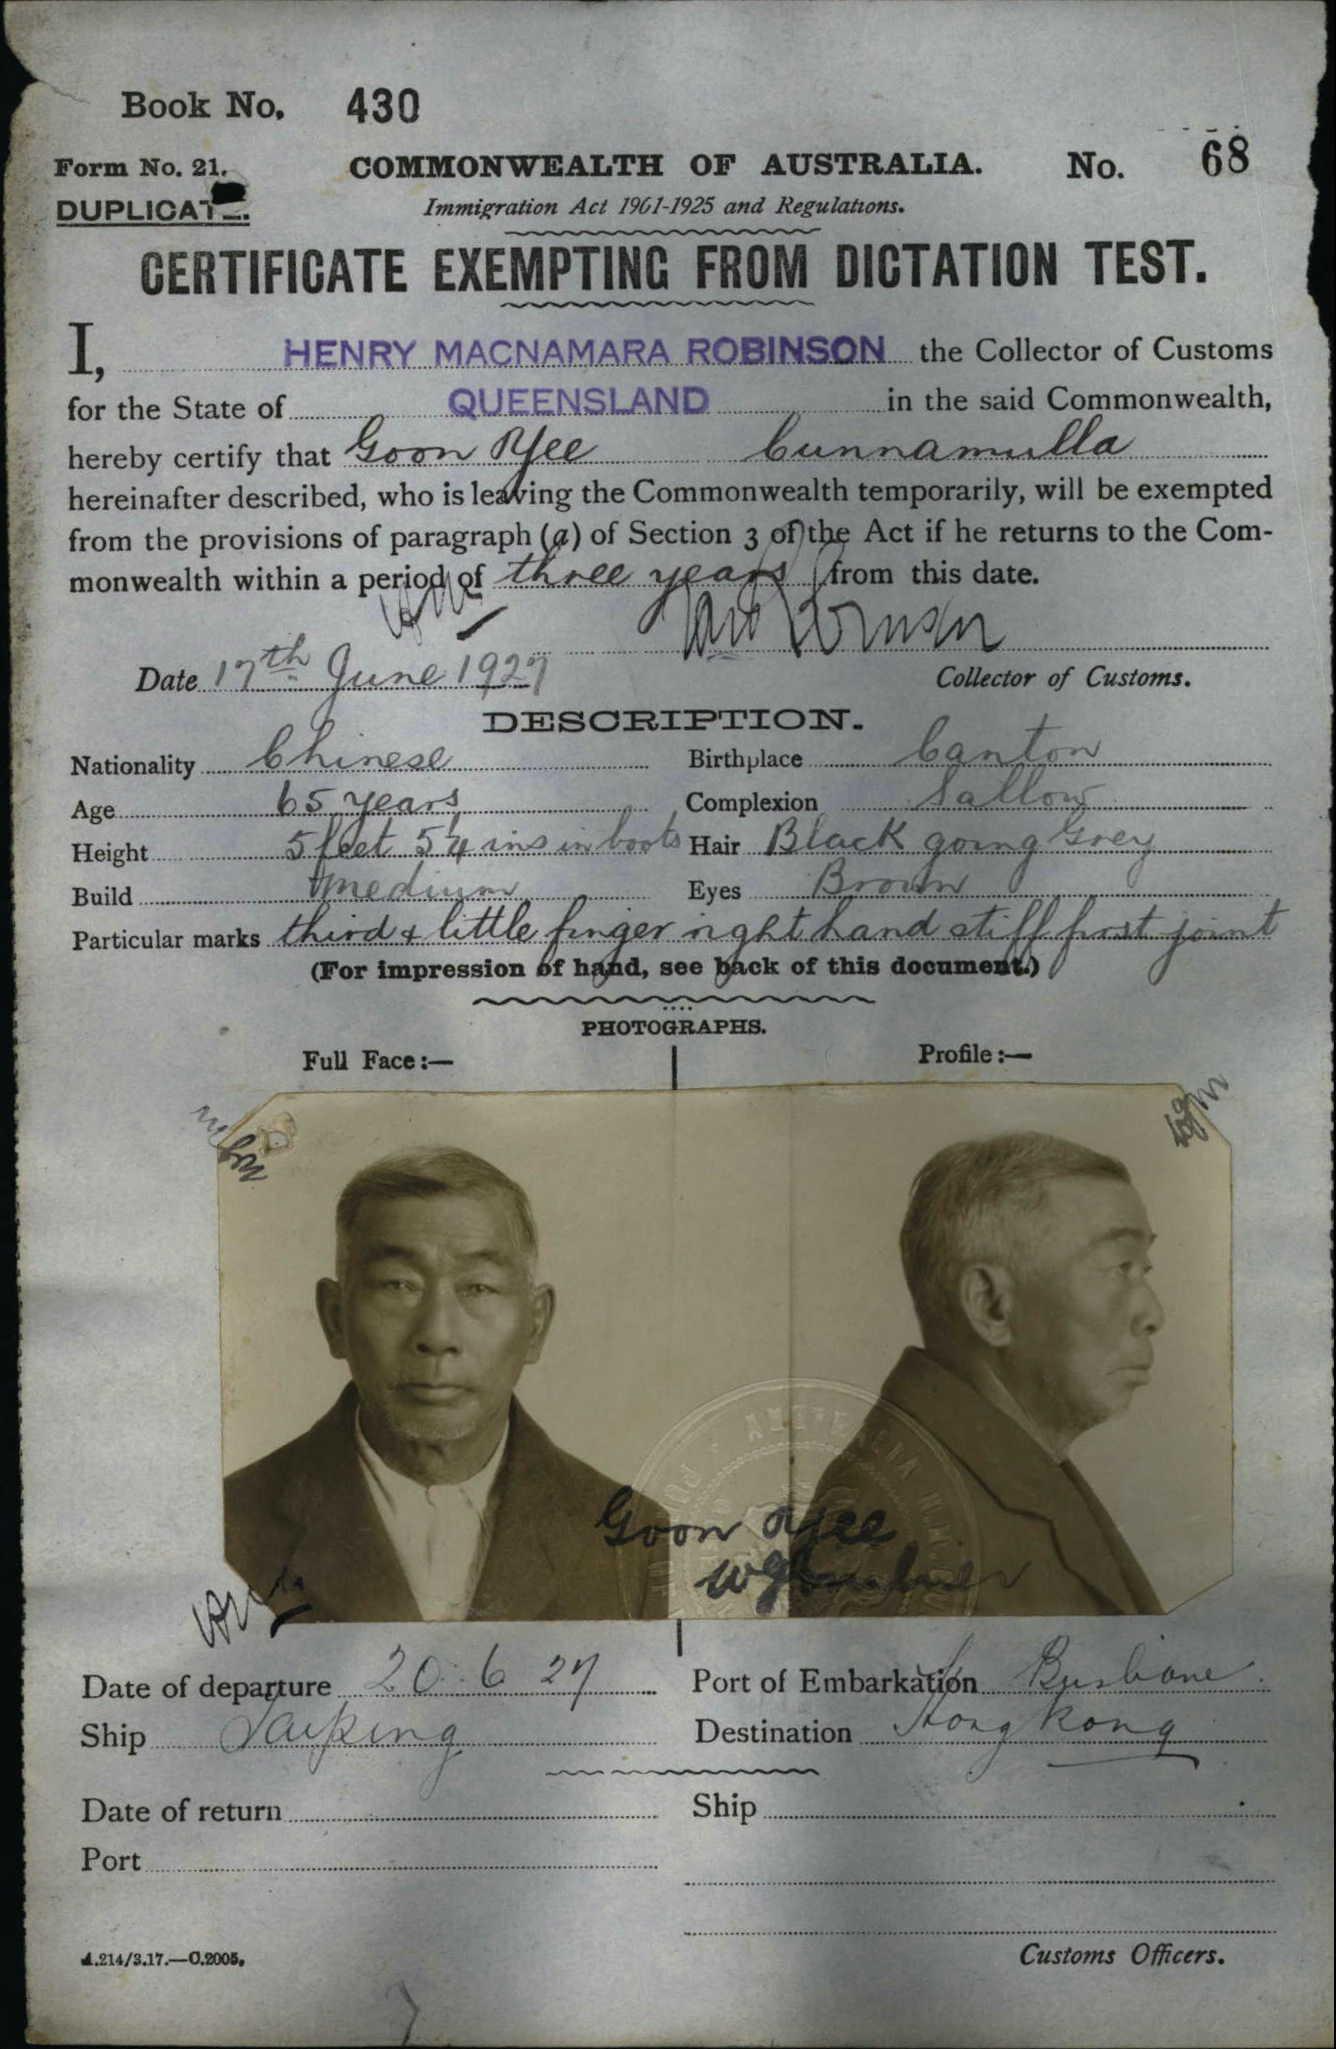 Book No. 430
Form No. 21. COMMONWEALTH OF AUSTRALIA. No. 68
DUPLICATE. Immigration Act 1901-1925 and Regulations.
CERTIFICATE EXEMPTING FROM DICTATION TEST.
I, HENRY MACNAMARA ROBINSON the Collector of Customs
for the State of QUEENSLAND in the said Commonwealth,
hereby certify that Goon Yee Cunnamulla
hereinafter described, who is leaving the Commonwealth temporarily, will be exempted
from the provisions of paragraph (a) of Section 3 of the Act if he returns to the Com-
monwealth within a period of three years from this date.
Date 17th June 1927 Collector of Customs.
DESCRIPTION.
Nationality Chinese Birthplace Canton
Age 65 years Complexion Sallow
Height 5 feet 5¼ ins in boots Hair Black going Grey
Build Medium Eyes Brown
Particular marks third & little finger right hand stiff first joint
(For impression of hand, see back of this document.)
PHOTOGRAPHS.
Full Face:— Profile:—
Goon Yee
Date of departure 20.6.27 Port of Embarkation Brisbane
Ship Taiping Destination Hong Kong
Date of return Ship
Port
A.214/3.17.—C.2005. Customs Officers.